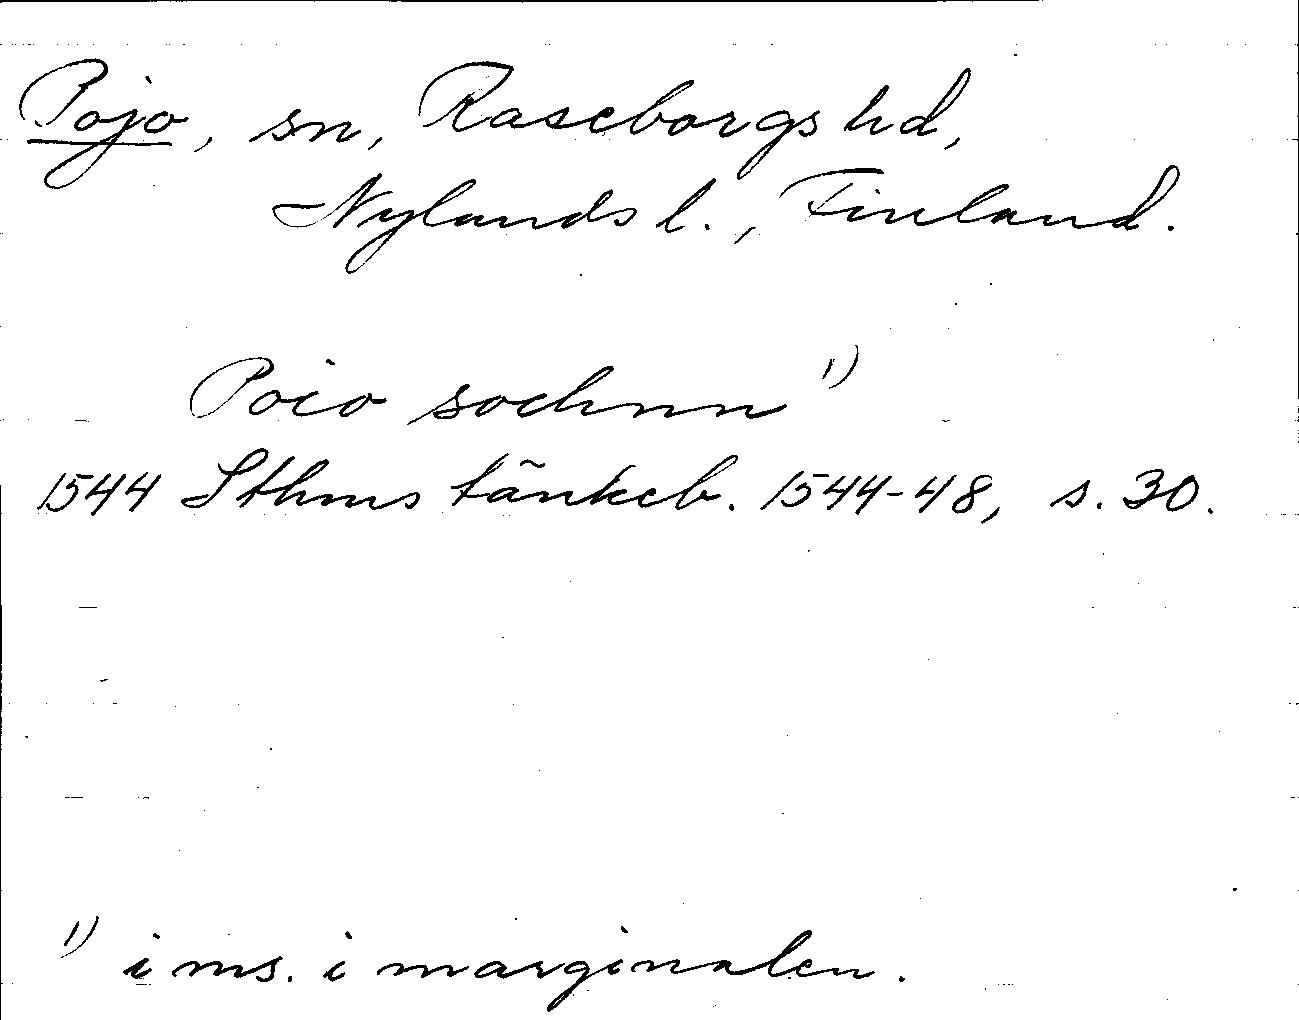 Pojo, sn, Raseborgs hd,
Nylands l., Finland.
Poio sochnn 1)
1544 Sthms tänkeb. 1544-48, s. 30.
1) i ms. i marginalen.